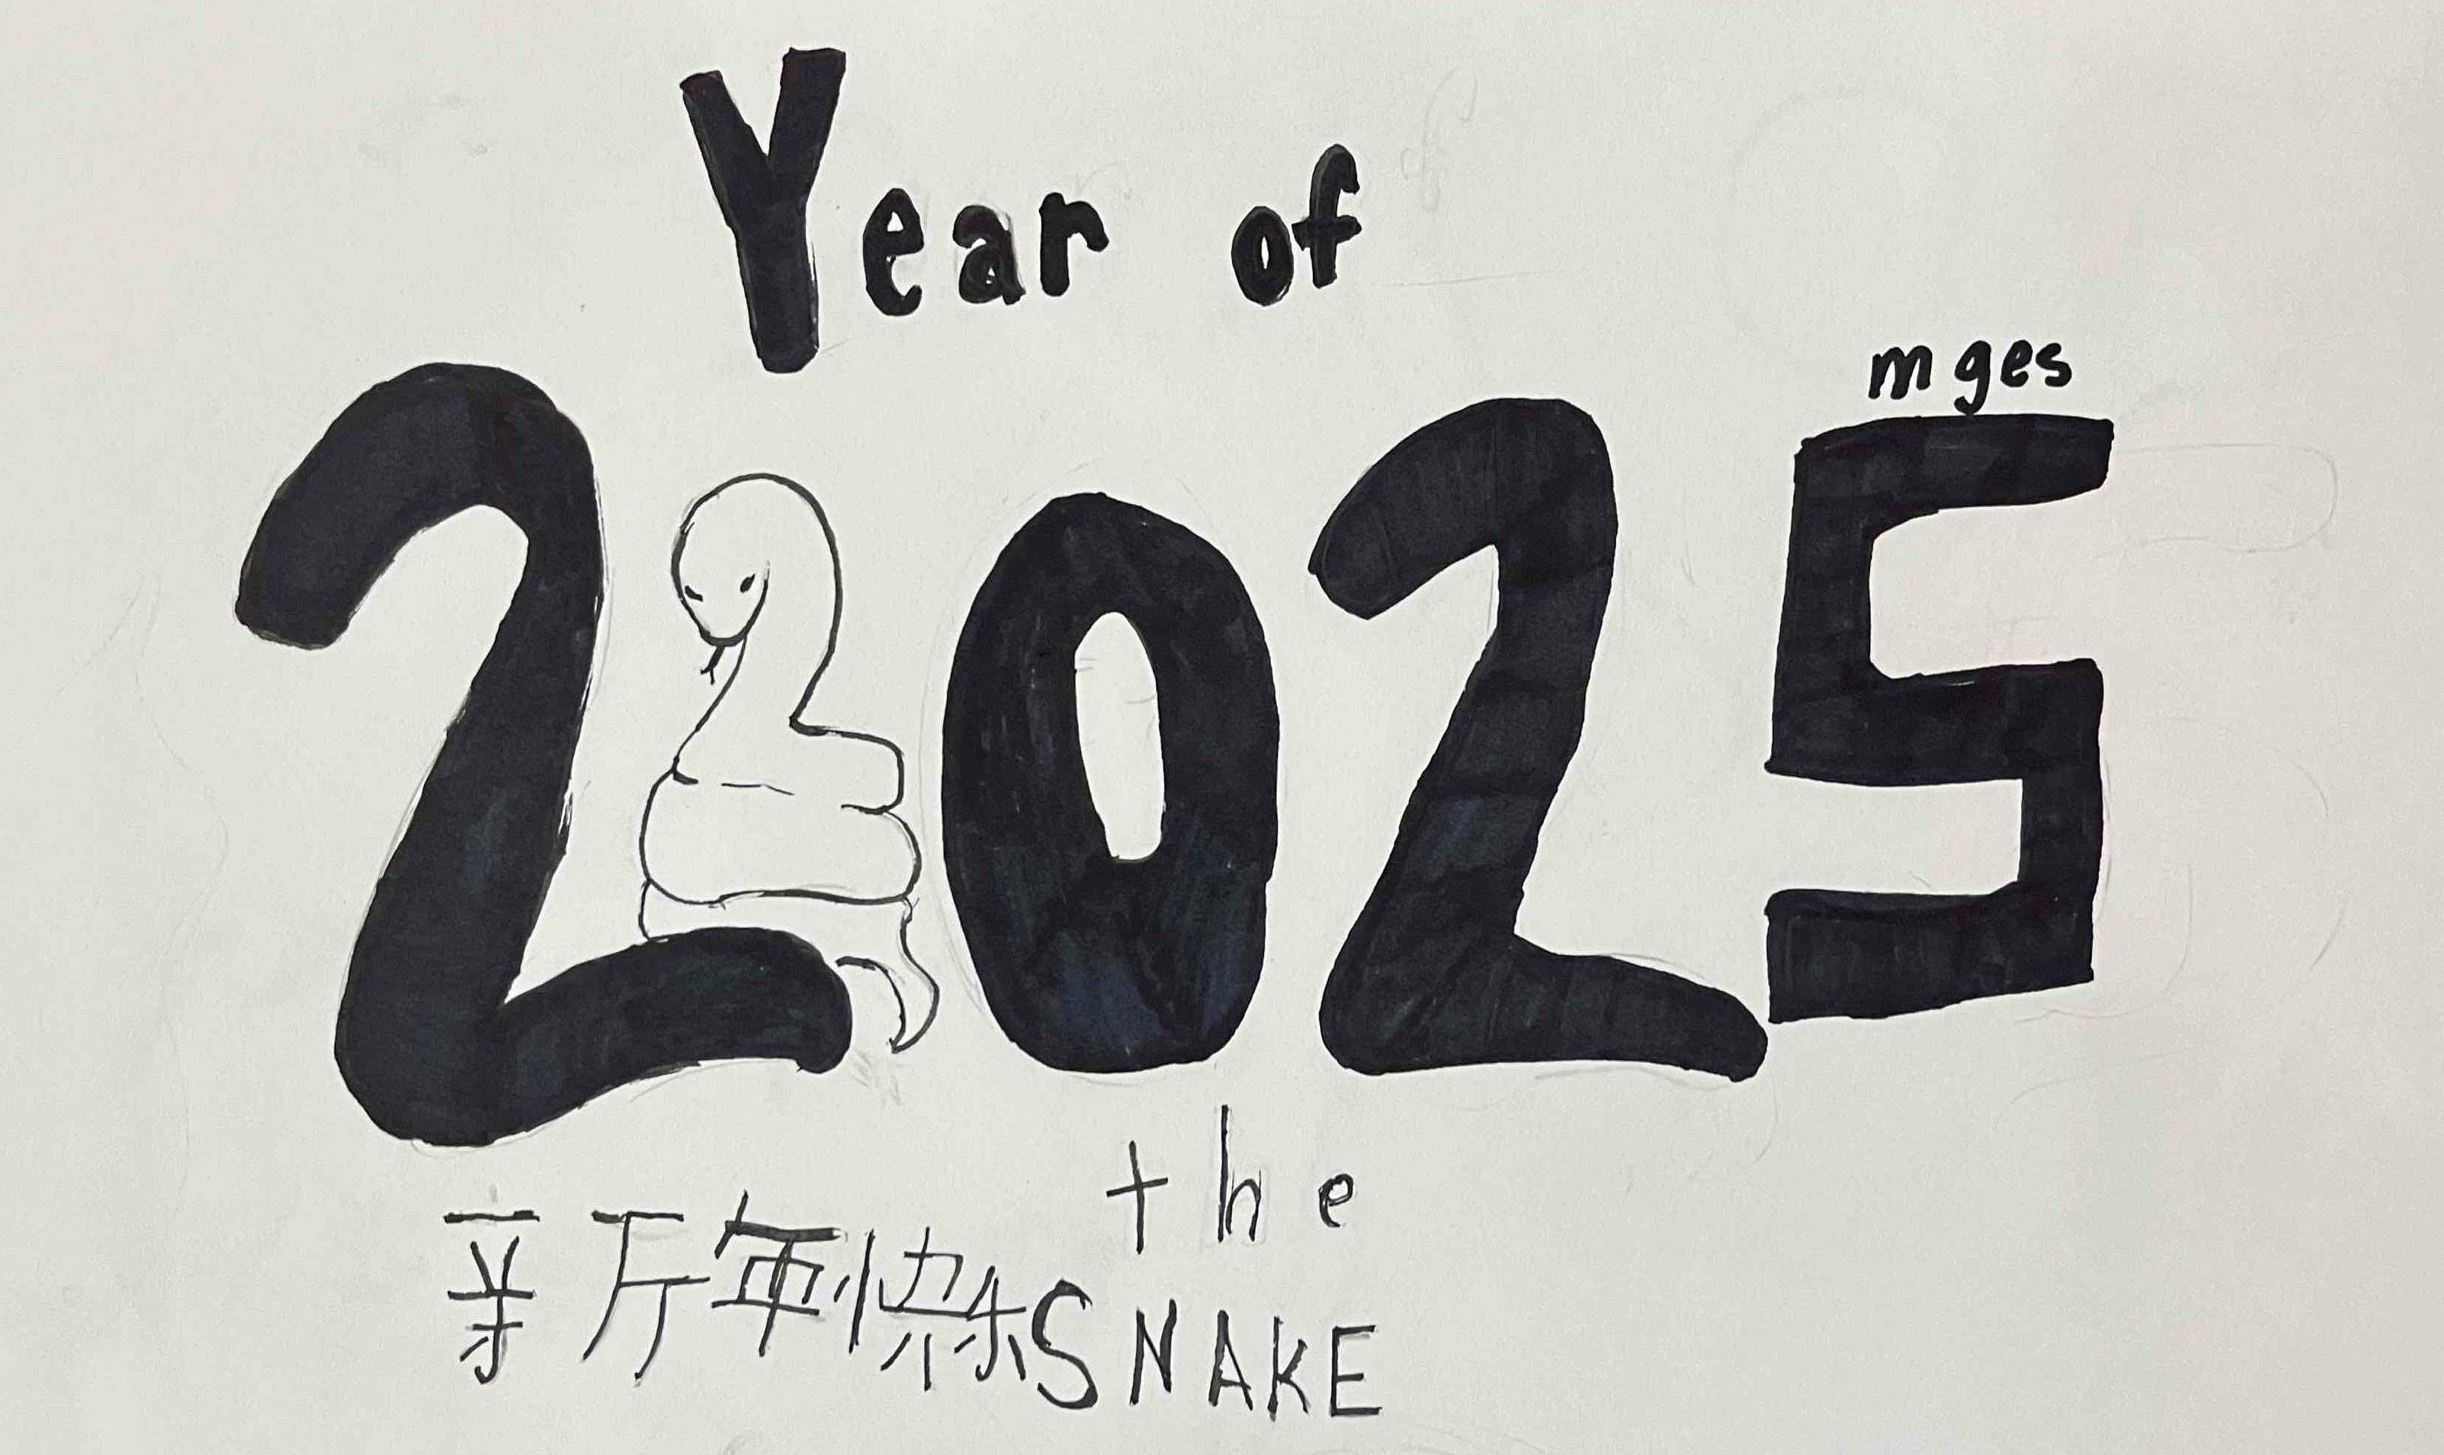 Year of
mges
2025
the
亲斤年快乐
SNAKE